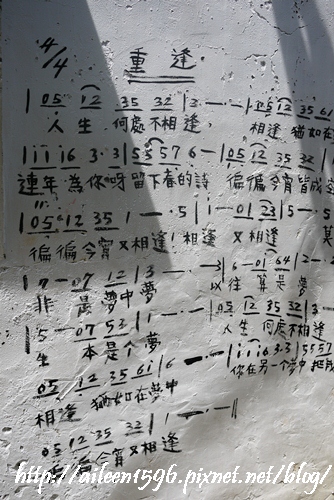 4/4 重逢
|05 12 35 32|3 - -|05 12 35 61
人生何處不相逢, 相逢猶如在
|i i i 16 3·3|5 5 57 6 -|05 12 35 32
連年為你呀留下春的詩 徧徧今宵皆成
|05 12 35 1 - ·5|i - 01 23|5 - ·5
徧徧今宵又相逢! 相逢又 某
|7 - ·07 12|3 - - ·3|6 - 01 64|2 - ·2
非是夢中夢 以往算是夢
|5 - 07 53|1 - - -|05 12 35 32|3
生本是个夢 人生何處不相逢
05 12 35 61|6 - · -|i i i 6 3·3|5 5 57
相逢猶如在夢中 你在另一个夢中把
05 12 35 32|1 - · -||
徧徧今宵又相逢
http://aileen1596.pixnet.net/blog/